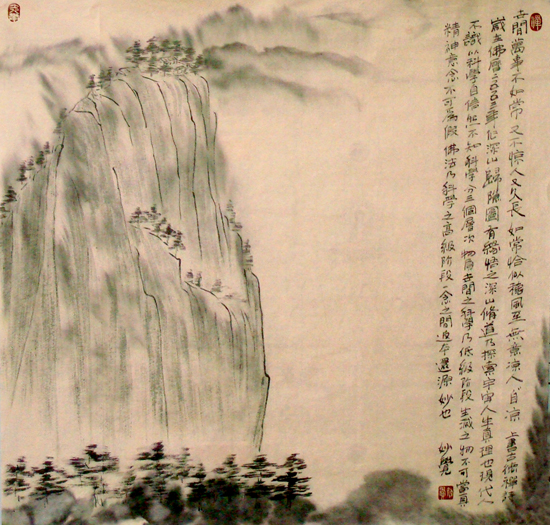 世間萬事不如常 又不惊人又久長 如常恰似穐風至 無意凉人人自凉 上書古德禪語
歲在佛曆二〇〇三年 作深山歸隐圖 有緣悟之 深山脩道乃探索宇宙人生真理也 現代人
不識 以科學自信 然不知科學分三個層次 物質世間之科學乃低級阶段 生滅之物不可當真
精神意念不可為假 佛法乃科學之高級阶段 一念之間返本還源 妙也 妙覺